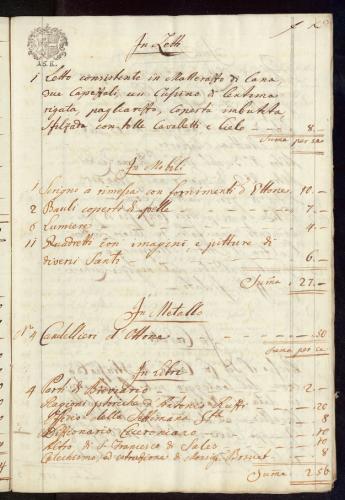 In Letti
1 Letto consistente in Matterasso di Lana
due Capezzali, un Cusino di
rigata, pagliarizzo, coperta imbutita,
con Tolle Cavalletti e Cielo 8
Suma per se
In Mobili
1 Scrigno a rimessa con fornimenti d'Ottone 10
2 Bauli coperti di pelle 7
6 Lumiere 4
11 Quadretti con imagini, e pitture di
diversi Santi 6
Suma 27
In Metallo
No 4 Candellieri d'Ottone 50
Suma per se
In Libri
4 Parti di Breviario 2
Ragioni storiche di Antonio Ruffi 20
Officio della Settimana Sta 8
Dizzionario Ciceroniano 10
di S. Francesco di Sales 10
Catechismo, ed istruzione di Monsig. Bossuet 8
Suma 2 56